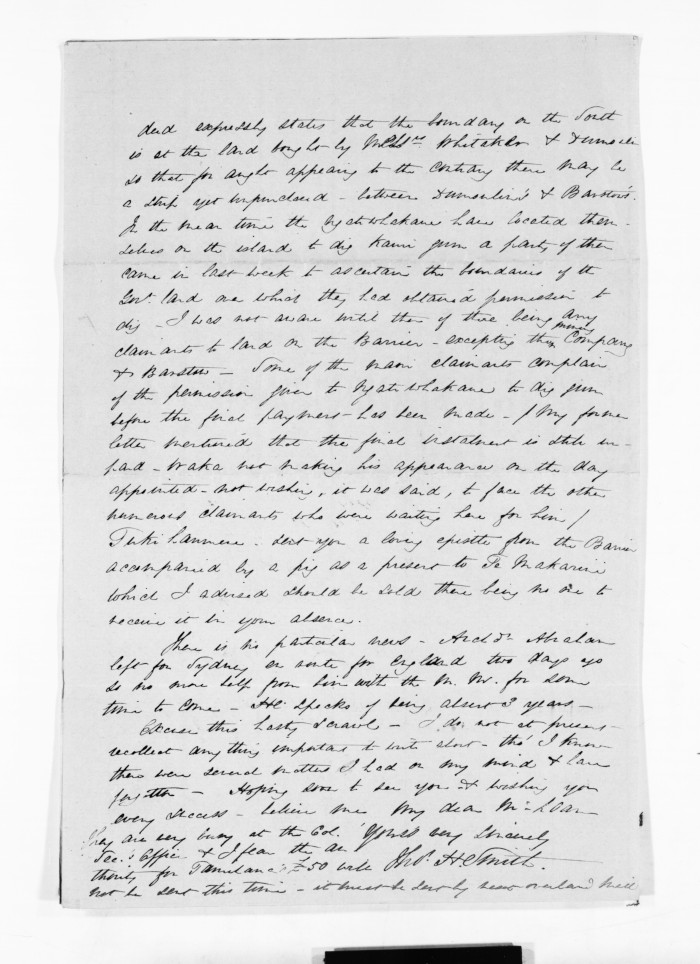 deed expressly states that the boundary on the South
is at the land bought by Messrs Whitaker & Dumoulin
so that for aught appearing to the contrary there may be
a strip yet unpurchased - between Dumoulin's & Barstow's.
In the mean time the Ngatiwhakaue have located them-
selves on the island to dig Kauri gum a party of them
came in last week to ascertain the boundaries of the
Govt. land over which they had obtained permission to
dig - I was not aware until then of there being any
claimants to land on the Barrier - excepting the Mining Company
& Barstow - Some of the maori claimants complain
of the permission given to Ngatiwhakaue to dig gum
before the final payment has been made - / My former
letter mentioned that the final instalment is still un-
paid - Waka not making his appearance on the day
appointed - not wishing, it was said, to face the other
numerous claimants who were waiting here for him /
Tuki sent you a loving epistle from the Barrier
accompanied by a pig as a present to Te Makarini
which I advised should be sold there being no one to
receive it in your absence.
There is no particular news - Archdn. Abraham
left for Sydney en route for England two days ago
so no more help from him with the M. Mr. for some
time to come - He speaks of being absent 3 years -
Excuse this hasty scrawl - I do not at present
recollect any thing important to write about - tho' I know
there were several matters I had on my mind & have
forgotten - Hoping soon to see you & wishing you
every success - believe me My dear McLean
Yours very sincerely
Thos. H. Smith.
They are very busy at the Col.
Sec.'s Office & I fear the au
thority for Tamihana's £50 will
not be sent this time - it must be sent by next overland mail